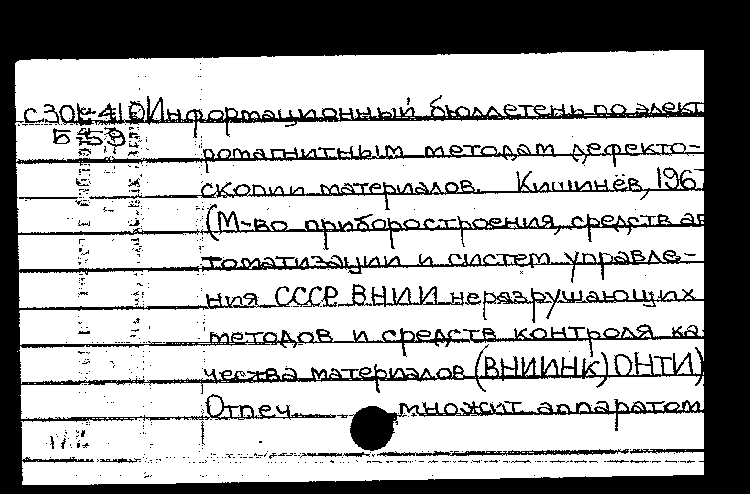 с30к-410 Информационный бюллетень по элект
Б-59 ромагнитным методам дефекто-
скопии материалов. Кишинёв, 196
(М-во приборостроения, средств ав
томатизации и систем управле-
ния СССР ВНИИ неразрушающих
методов и средств контроля ка
чества материалов (ВНИИНК) ОНТИ)
Отпеч. множит. аппаратом